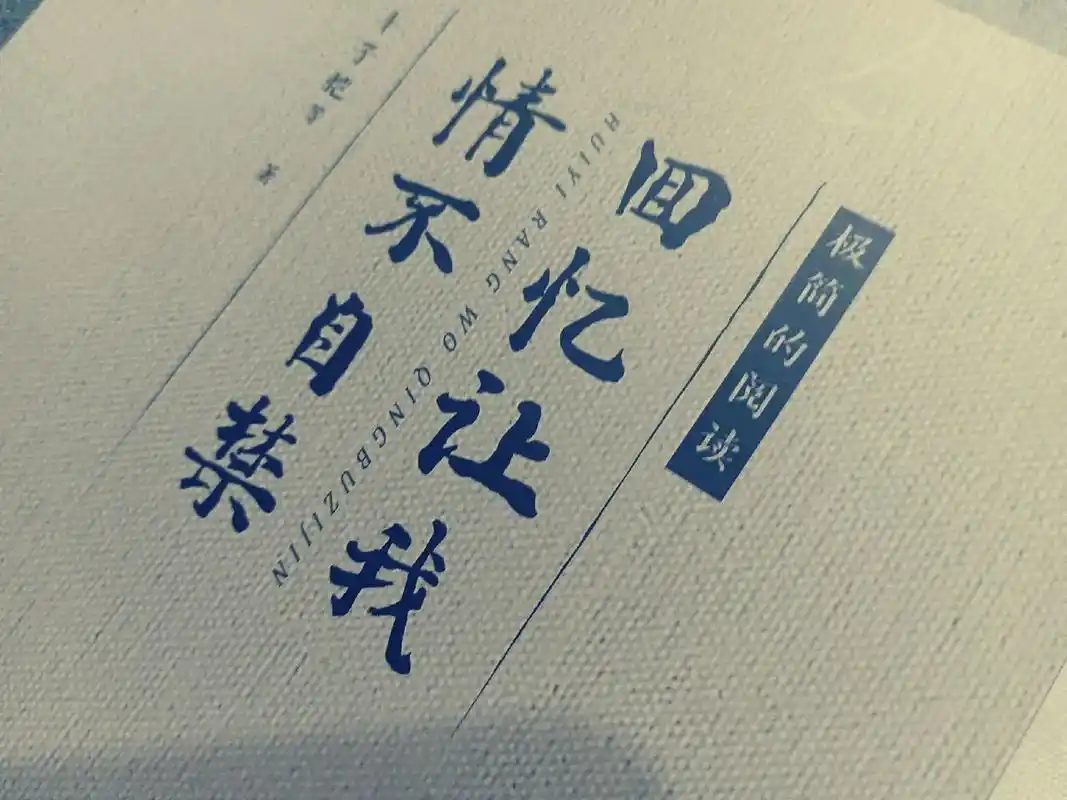 极简的阅读
回忆让我
HUIYI RANG WO QINGBUZIJIN
情不自禁
著